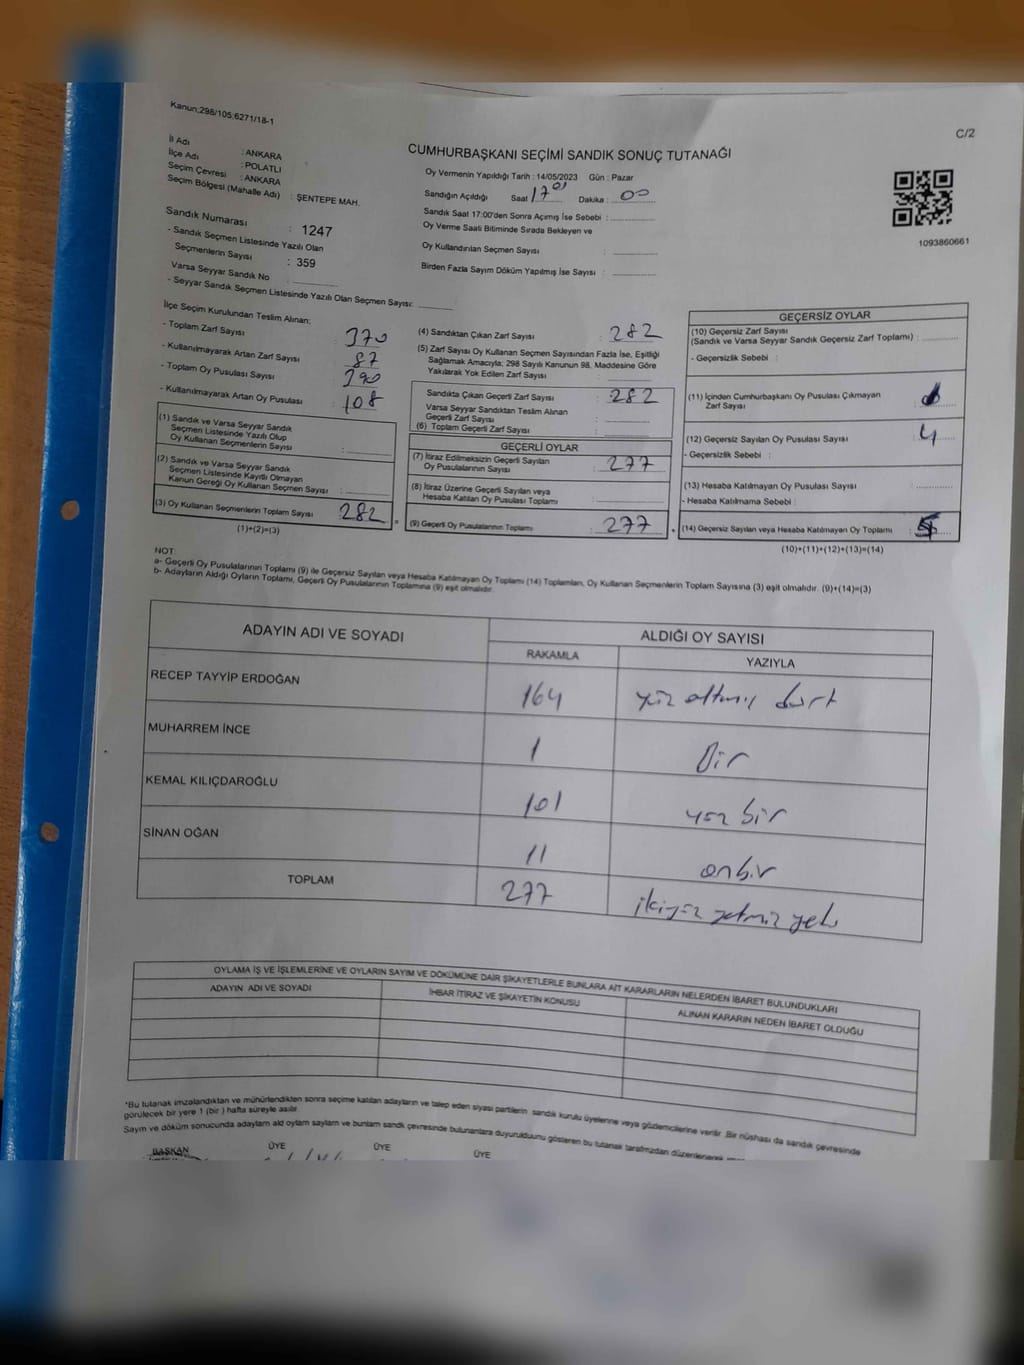 Kanun:298/105;6271/18-1
C/2
İl Adı : ANKARA
İlçe Adı : POLATLI
Seçim Çevresi : ANKARA
Seçim Bölgesi (Mahalle Adı) : ŞENTEPE MAH.
CUMHURBAŞKANI SEÇİMİ SANDIK SONUÇ TUTANAĞI
Oy Vermenin Yapıldığı Tarih : 14/05/2023 Gün : Pazar
Sandığın Açıldığı Saat 17 Dakika : 00
Sandık Saat 17:00'den Sonra Açımış İse Sebebi :
Oy Verme Saati Bitiminde Sırada Bekleyen ve
Oy Kullandırılan Seçmen Sayısı :
Birden Fazla Sayım Döküm Yapılmış İse Sayısı :
1093860661
Sandık Numarası : 1247
- Sandık Seçmen Listesinde Yazılı Olan
Seçmenlerin Sayısı : 359
Varsa Seyyar Sandık No :
- Seyyar Sandık Seçmen Listesinde Yazılı Olan Seçmen Sayısı:
İlçe Seçim Kurulundan Teslim Alınan;
- Toplam Zarf Sayısı 370
- Kullanılmayarak Artan Zarf Sayısı 87
- Toplam Oy Pusulası Sayısı 390
- Kullanılmayarak Artan Oy Pusulası 108
(1) Sandık ve Varsa Seyyar Sandık
Seçmen Listesinde Yazılı Olup
Oy Kullanan Seçmenlerin Sayısı :
(2) Sandık ve Varsa Seyyar Sandık
Seçmen Listesinde Kayıtlı Olmayan
Kanun Gereği Oy Kullanan Seçmen Sayısı :
(3) Oy Kullanan Seçmenlerin Toplam Sayısı 282
(1)+(2)=(3)
(4) Sandıktan Çıkan Zarf Sayısı : 282
(5) Zarf Sayısı Oy Kullanan Seçmen Sayısından Fazla İse, Eşitliği
Sağlamak Amacıyla; 298 Sayılı Kanunun 98. Maddesine Göre
Yakılarak Yok Edilen Zarf Sayısı :
Sandıkta Çıkan Geçerli Zarf Sayısı : 282
Varsa Seyyar Sandıktan Teslim Alınan
Geçerli Zarf Sayısı :
(6) Toplam Geçerli Zarf Sayısı :
GEÇERLİ OYLAR
(7) İtiraz Edilmeksizin Geçerli Sayılan
Oy Pusulalarının Sayısı : 277
(8) İtiraz Üzerine Geçerli Sayılan veya
Hesaba Katılan Oy Pusulası Toplamı :
(9) Geçerli Oy Pusulalarının Toplamı : 277
GEÇERSİZ OYLAR
(10) Geçersiz Zarf Sayısı
(Sandık ve Varsa Seyyar Sandık Geçersiz Zarf Toplamı) :
- Geçersizlik Sebebi :
(11) İçinden Cumhurbaşkanı Oy Pusulası Çıkmayan
Zarf Sayısı :
(12) Geçersiz Sayılan Oy Pusulası Sayısı : 4
- Geçersizlik Sebebi :
(13) Hesaba Katılmayan Oy Pusulası Sayısı :
- Hesaba Katılmama Sebebi :
(14) Geçersiz Sayılan veya Hesaba Katılmayan Oy Toplamı : 5
(10)+(11)+(12)+(13)=(14)
NOT:
a- Geçerli Oy Pusulalarının Toplamı (9) ile Geçersiz Sayılan veya Hesaba Katılmayan Oy Toplamı (14) Toplamları, Oy Kullanan Seçmenlerin Toplam Sayısına (3) eşit olmalıdır. (9)+(14)=(3)
b- Adayların Aldığı Oyların Toplamı, Geçerli Oy Pusulalarının Toplamına (9) eşit olmalıdır.
ADAYIN ADI VE SOYADI
ALDIĞI OY SAYISI
RAKAMLA YAZIYLA
RECEP TAYYİP ERDOĞAN 164 yüz altmış dört
MUHARREM İNCE 1 Bir
KEMAL KILIÇDAROĞLU 101 yüz bir
SİNAN OĞAN 11 onbir
TOPLAM 277 ikiyüz yetmiş yedi
OYLAMA İŞ VE İŞLEMLERİNE VE OYLARIN SAYIM VE DÖKÜMÜNE DAİR ŞİKAYETLERLE BUNLARA AİT KARARLARIN NELERDEN İBARET BULUNDUKLARI
ADAYIN ADI VE SOYADI İHBAR İTİRAZ VE ŞİKAYETİN KONUSU ALINAN KARARIN NEDEN İBARET OLDUĞU
*Bu tutanak imzalandıktan ve mühürlendikten sonra seçime katılan adayların ve talep eden siyasi partilerin sandık kurulu üyelerine veya gözlemcilerine verilir. Bir nüshası da sandık çevresinde
görülecek bir yere 1 (bir ) hafta süreyle asılır.
Sayım ve döküm sonucunda adayların ald oyların sayıların ve bunların sandık çevresinde bulunanlara duyurulduunu gösteren bu tutanak tarafımızdan düzenlenerek
BAŞKAN ÜYE ÜYE ÜYE